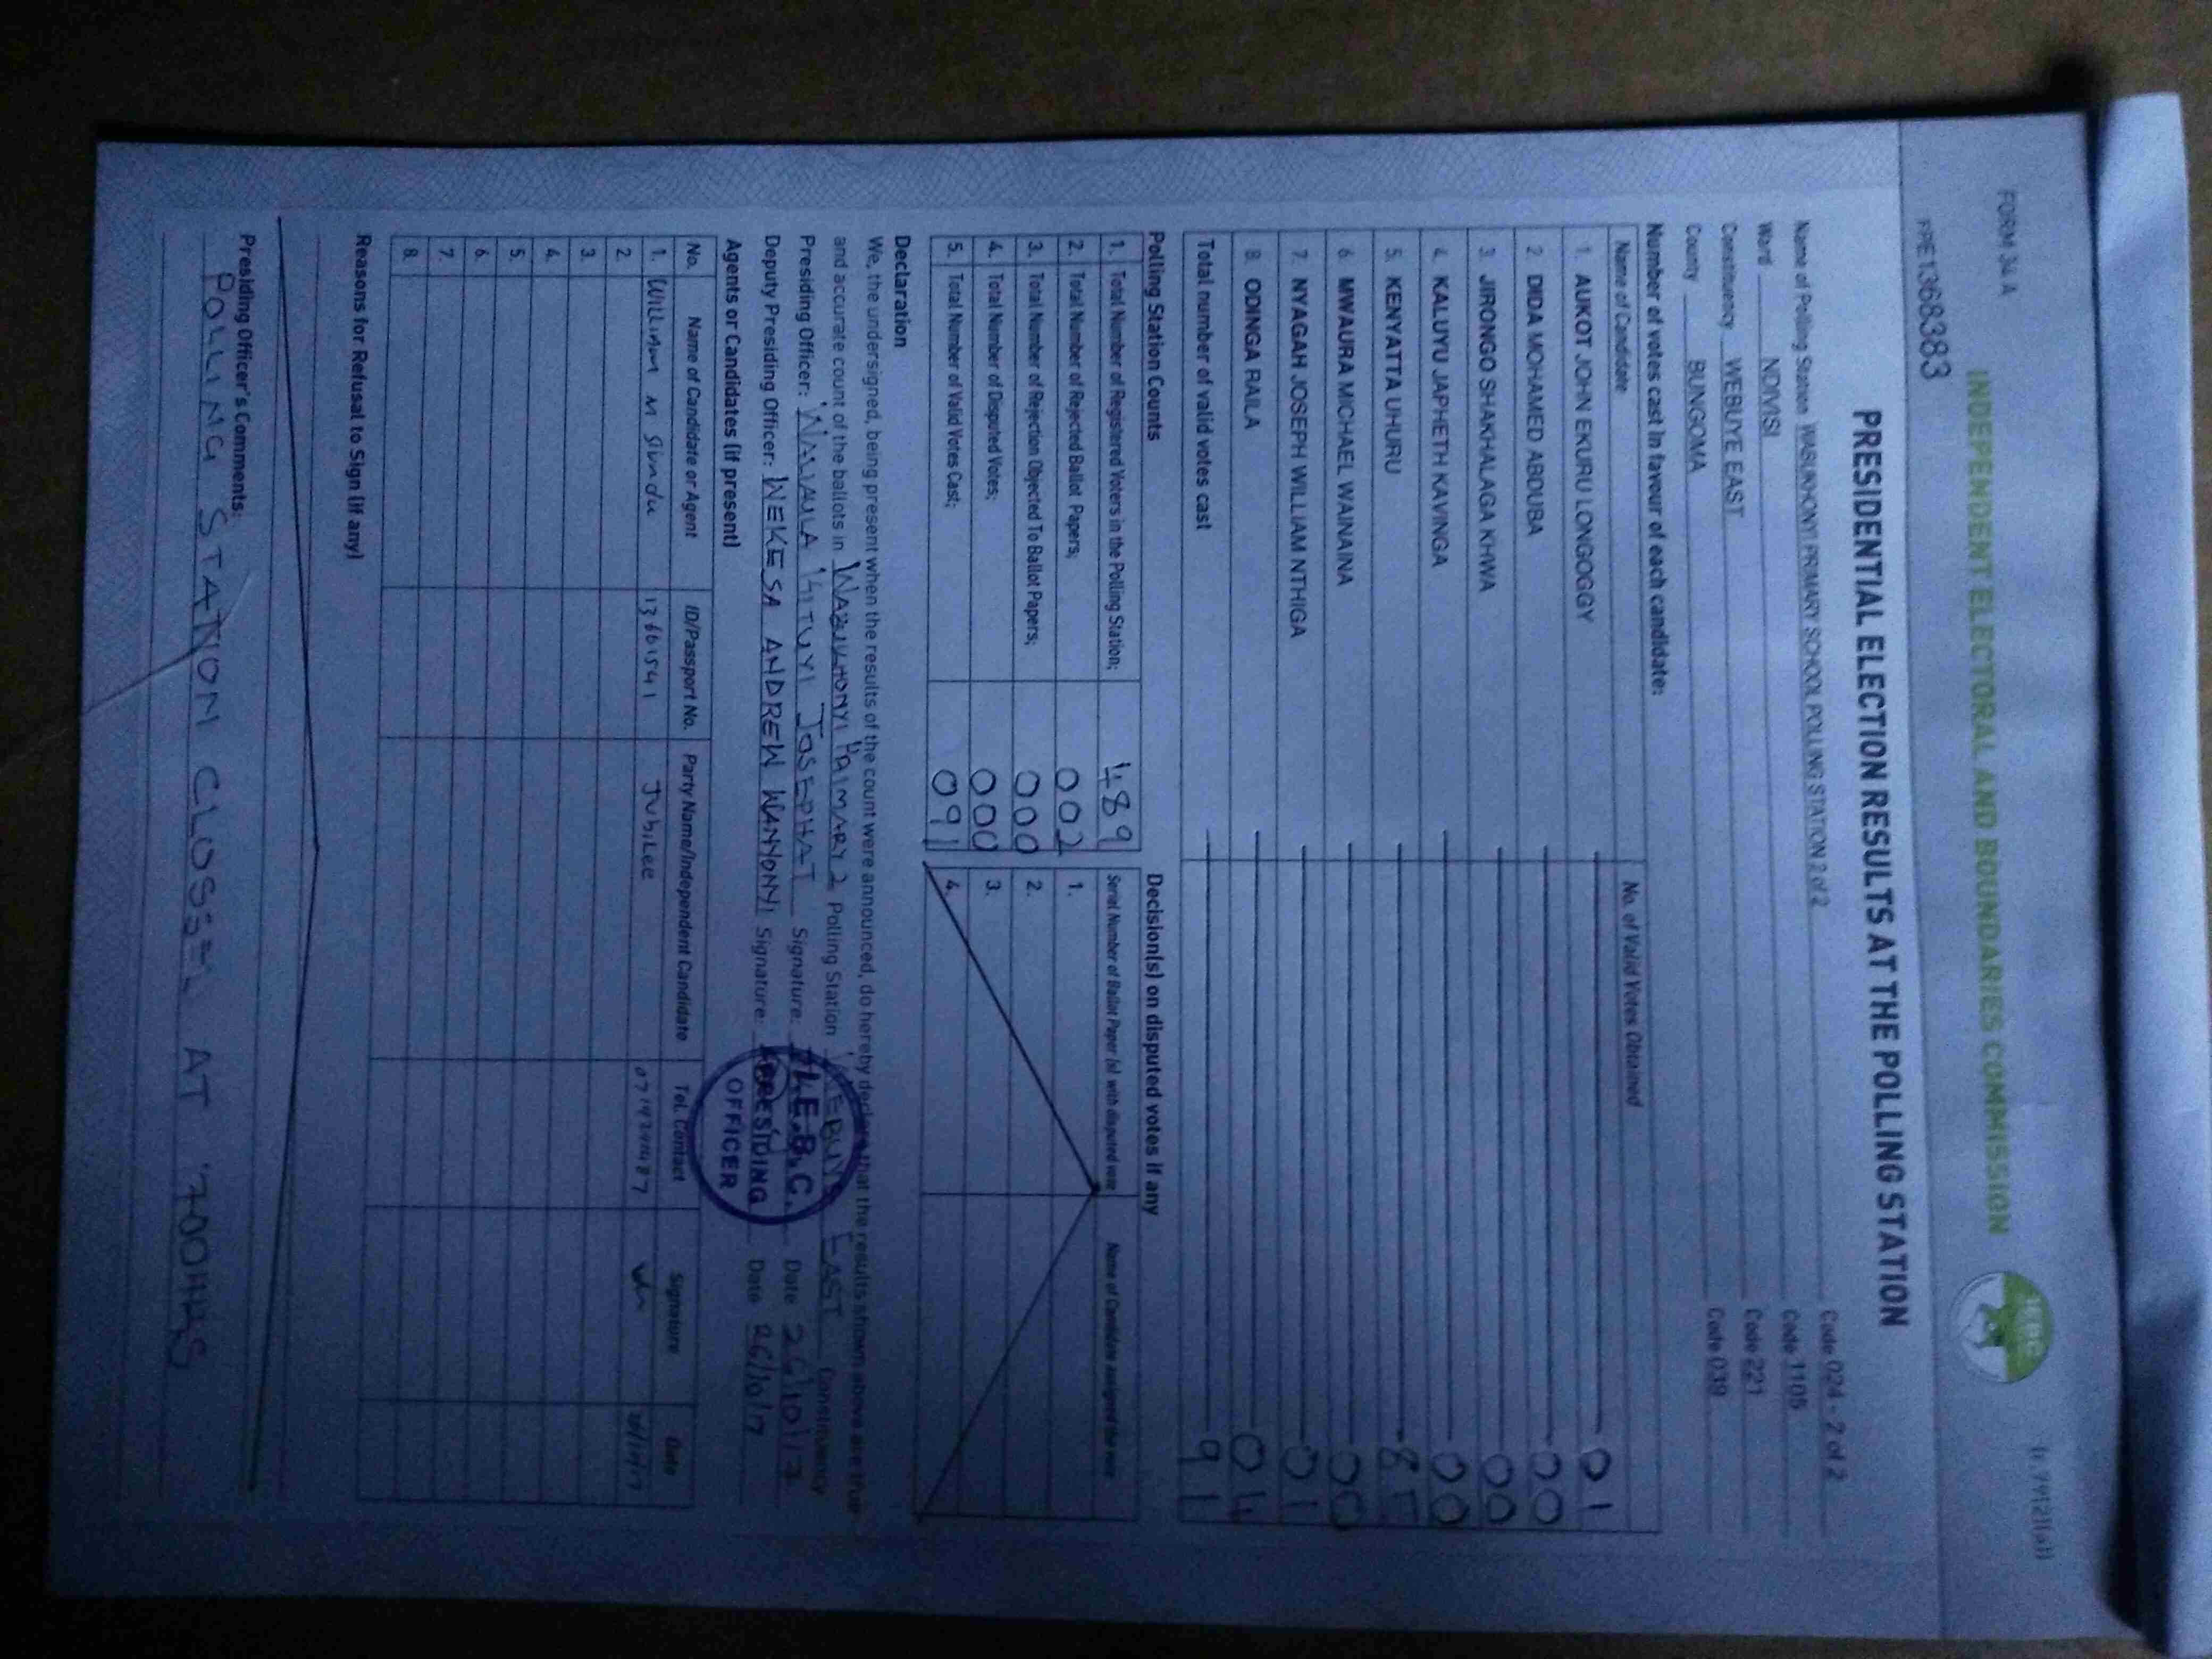 FORM 34 A
(r. 79(2)(a))
INDEPENDENT ELECTORAL AND BOUNDARIES COMMISSION
IEBC
PPE1368383
PRESIDENTIAL ELECTION RESULTS AT THE POLLING STATION
Name of Polling Station WABUKHONYI PRIMARY SCHOOL POLLING STATION 2 of 2 Code 024 - 2 of 2
Ward NDIVISI Code 1105
Constituency WEBUYE EAST Code 221
County BUNGOMA Code 039
Number of votes cast in favour of each candidate:
Name of Candidate No. of Valid Votes Obtained
1. AUKOT JOHN EKURU LONGOGGY 01
2. DIDA MOHAMED ABDUBA 00
3. JIRONGO SHAKHALAGA KHWA 00
4. KALUYU JAPHETH KAVINGA 00
5. KENYATTA UHURU 85
6. MWAURA MICHAEL WAINAINA 00
7. NYAGAH JOSEPH WILLIAM NTHIGA 01
8. ODINGA RAILA 04
Total number of valid votes cast 91
Polling Station Counts
1. Total Number of Registered Voters in the Polling Station; 489
2. Total Number of Rejected Ballot Papers; 002
3. Total Number of Rejection Objected To Ballot Papers; 000
4. Total Number of Disputed Votes; 000
5. Total Number of Valid Votes Cast; 091
Decision(s) on disputed votes if any
Serial Number of Ballot Paper (s) with disputed vote Name of Candidate assigned the vote
1.
2.
3.
4.
Declaration
We, the undersigned, being present when the results of the count were announced, do hereby declare that the results shown above are true
and accurate count of the ballots in WABUKHONYI PRIMARY 2 Polling Station WEBUYE EAST Constituency
Presiding Officer: WAMAULA JOSEPHAT Signature: Date 26/10/17
Deputy Presiding Officer: WEKESA ANDREW WANYONYI Signature: Date 26/10/17
I.E.B.C.
PRESIDING
OFFICER
Agents or Candidates (if present)
No. Name of Candidate or Agent ID/Passport No. Party Name/Independent Candidate Tel. Contact Signature Date
1. William M Sindu 13661541 Jubilee
2.
3.
4.
5.
6.
7.
8.
Reasons for Refusal to Sign (if any)
Presiding Officer's Comments:
POLLING STATION CLOSED AT 1700HRS